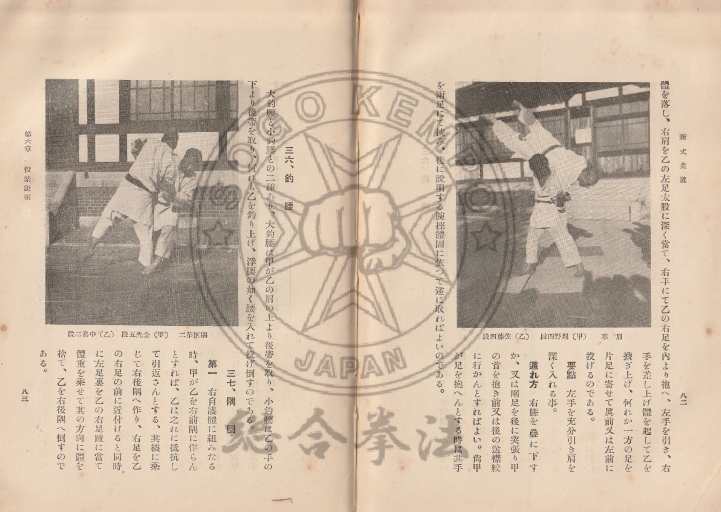 新式柔道
八二
體を落し、右肩を乙の左足太股に深く當て、右手にて乙の右足を內より抱へ、左手を引き、右
手を差し上げ體を起して乙を
擔ぎ上げ、何れか一方の足を
片足に寄せて眞前又は左前に
投げるのである。
要點 左手を充分引き肩を
深く入れる事。
逃れ方 右膝を疊に下す
か、又は兩足を後に突張り甲
の首を抱き前又は後の送襟絞
に行かんとすればよい。尙甲
が足を抱へんとする時は其手
を兩足にて挾み、後に說明する腕挫體固に依つて逆に取ればよいのである。
肩車 (甲)淵野四段 (乙)佐藤四段
三六、釣腰
大釣腰と小釣腰との二種あり、大釣腰は甲が乙の肩の上より後帶を取り、小釣腰は乙の手の
下より後帶を取り、何れも乙を釣り上げ、浮腰の如く腰を入れて投げ倒すのである。
三七、隅返
第一 右自護體に組みたる
時、甲が乙を右前隅に作らん
とすれば、乙は之れに抵抗し
て引返さんとする、其機に乘
じて右後隅へ作り、右足を乙
の右足の前に近付けると同時
に左足裏を乙の右足踵に當て
體重を乘せて其の方向に體を
捨て、乙を右後隅へ倒すので
ある。
(甲)金光五段 (乙)中島二段
第六章 投業說明
八三
SOGO KENPO
JAPAN
総合拳法